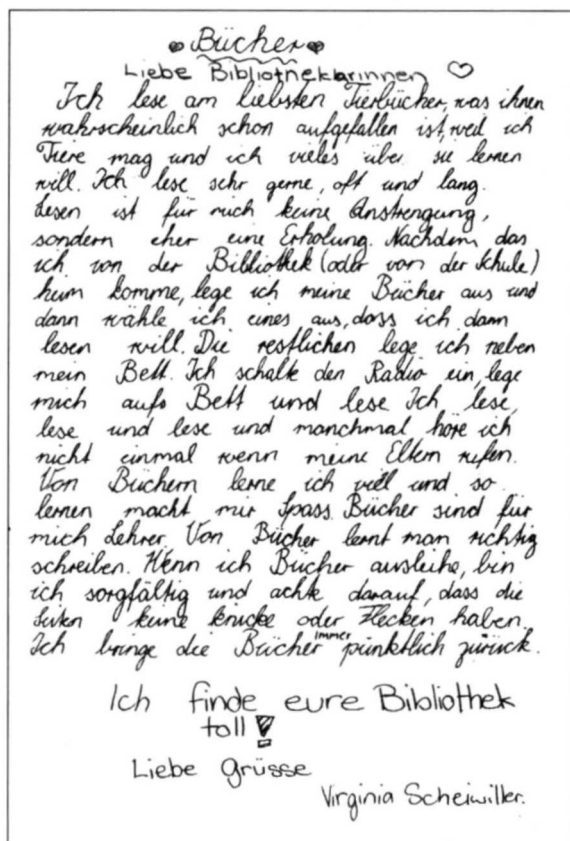 Bücher
Liebe Bibliothekarinnen
Ich lese am liebsten Tierbücher, was ihnen
wahrscheinlich schon aufgefallen ist, weil ich
Tiere mag und ich vieles über sie lernen
will. Ich lese sehr gerne, oft und lang.
Lesen ist für mich keine Anstrengung,
sondern eher eine Erholung. Nachdem das
ich von der Bibliothek (oder von der Schule)
heim komme, lege ich meine Bücher aus und
dann wähle ich eines aus, dass ich dann
lesen will. Die restlichen lege ich neben
mein Bett. Ich schalte den Radio ein, lege
mich aufs Bett und lese Ich lese,
lese und lese und manchmal höre ich
nicht einmal wenn meine Eltern rufen.
Von Büchern lerne ich viel und so
lernen macht mir Spass. Bücher sind für
mich Lehrer. Von Bücher lernt man richtig
schreiben. Wenn ich Bücher ausleihe, bin
ich sorgfältig und achte darauf, dass die
Seiten keine knicke oder Flecken haben.
Ich bringe die Bücher immer pünktlich zurück.
Ich finde eure Bibliothek
toll!
Liebe Grüsse
Virginia Scheiwiller.